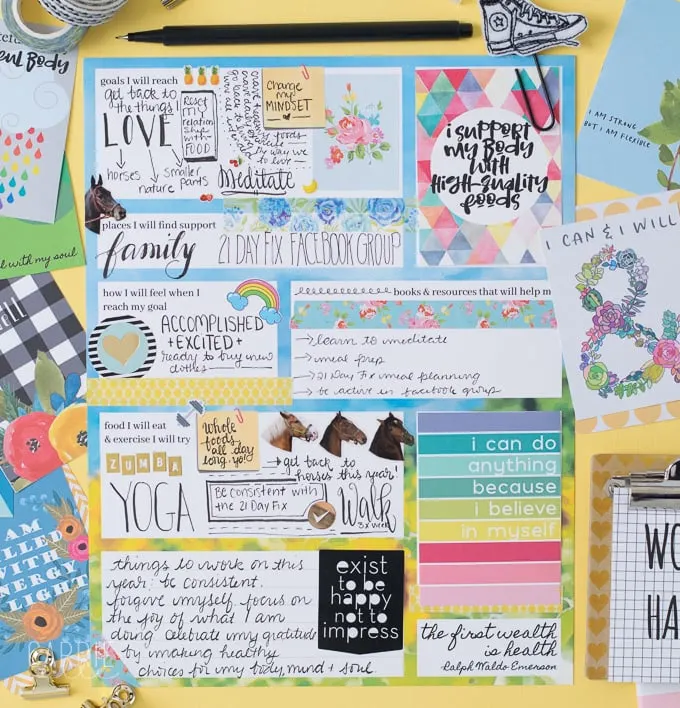 Body
goals I will reach
get back to
the things I
LOVE
horses
nature
smaller
pants
Reset
my
relation
ship with
FOOD
change
my
MINDSET
Meditate
i support
my Body
with
High-Quality
foods
I AM STRONG
BUT I AM FLEXIBLE
places I will find support
family
21 DAY FIX FACEBOOK GROUP
l with my soul
I CAN & I WILL
how I will feel when I
reach my goal
ACCOMPLISHED
+EXCITED+
ready to buy new
clothes
books & resources that will help m
→learn to meditate
→meal prep
→21 Day Fix meal planning
→be active in facebook group
food I will eat
& exercise I will try
ZUMBA
YOGA
whole
foods
all day
long, yo!
→get back to
horses this year!
Be consistent with
the 21 Day Fix
Walk
3x week
i can do
anything
because
i believe
in myself
things to work on this
year: be consistent.
forgive myself. focus on
the joy of what I am
doing. celebrate my gratitude
by making healthy
choices for my body, mind + soul.
exist
to be
happy
not to
impress
the first wealth
is health
Ralph Waldo Emerson
AM
WITH
WO
HA